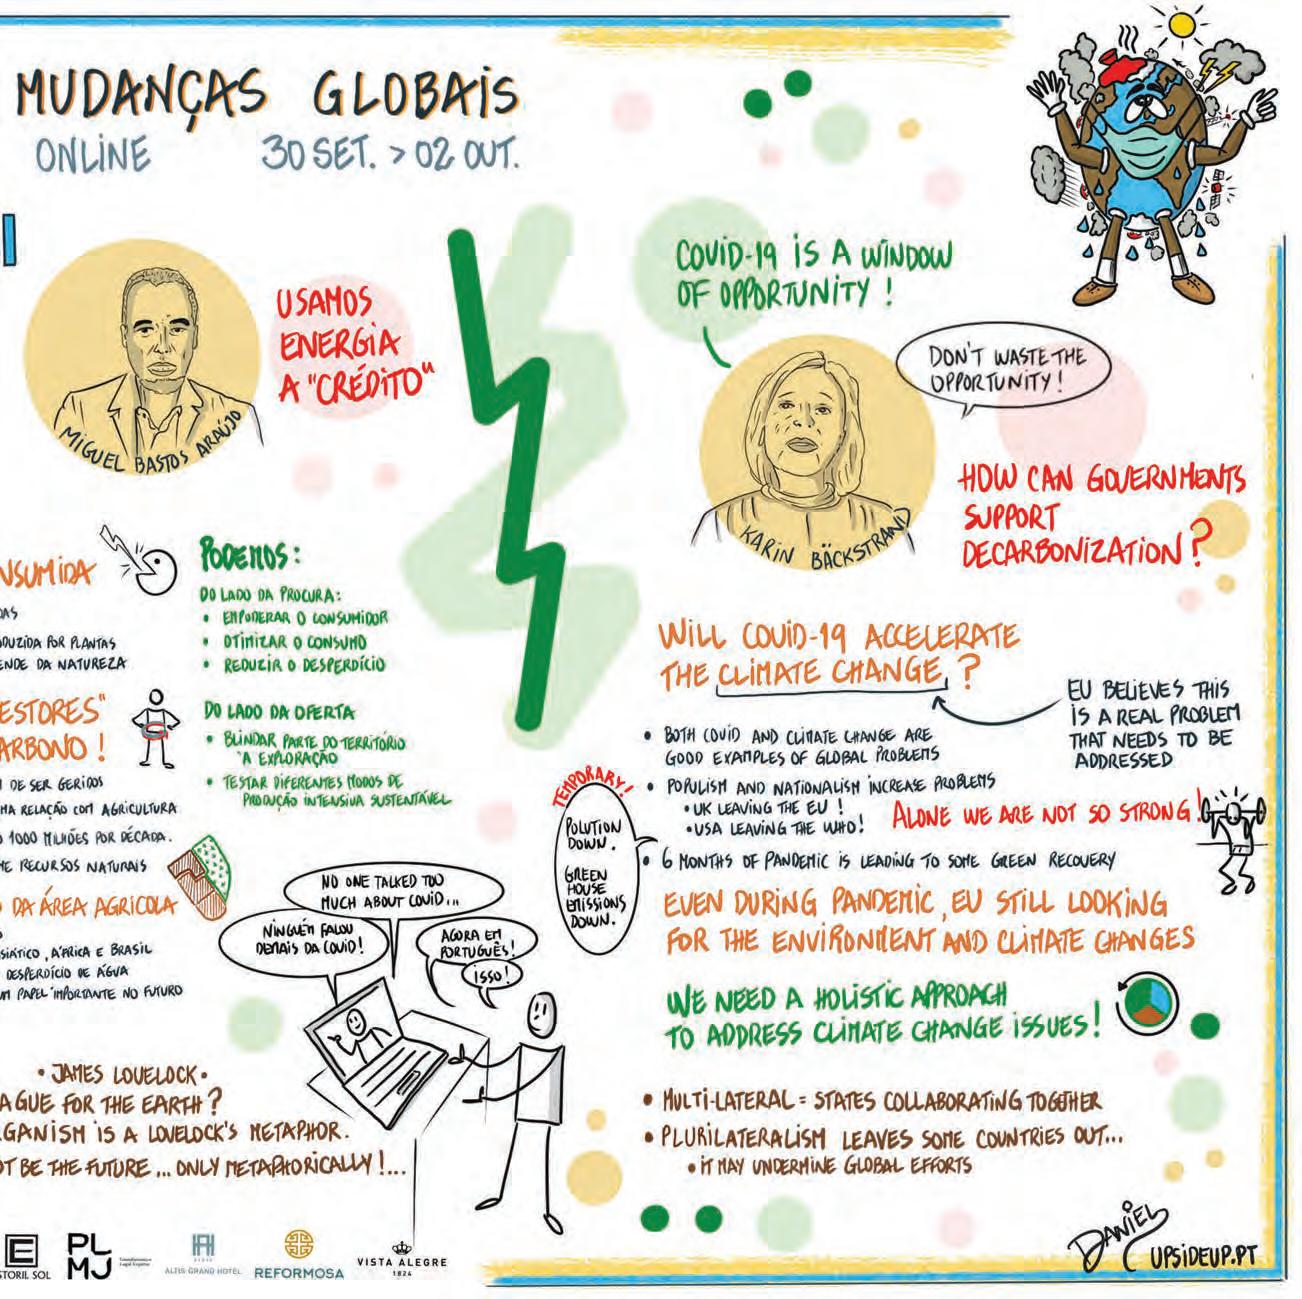 MUDANÇAS GLOBAIS
ONLINE 30 SET. > 02 OUT.
USAMOS
ENERGIA
A "CRÉDITO"
MIGUEL BASTOS ARAÚJO
NSUMIDA
DAS
ODUZIDA POR PLANTAS
ENDE DA NATUREZA
ESTORES"
ARBONO!
M DE SER GERIDOS
MA RELAÇÃO COM AGRICULTURA
O 1000 MILHÕES POR DÉCADA.
ME RECURSOS NATURAIS
DA ÁREA AGRICOLA
SIÁTICO, ÁFRICA E BRASIL
DESPERDÍCIO DE ÁGUA
UM PAPEL IMPORTANTE NO FUTURO
PODEMOS:
DO LADO DA PROCURA:
• EMPODERAR O CONSUMIDOR
• OTIMIZAR O CONSUMO
• REDUZIR O DESPERDÍCIO
DO LADO DA OFERTA
• BLINDAR PARTE DO TERRITÓRIO
"A EXPLORAÇÃO
• TESTAR DIFERENTES MODOS DE
PRODUÇÃO INTENSIVA SUSTENTÁVEL
NO ONE TALKED TOO
MUCH ABOUT COVID...
NINGUÉM FALOU
DEMAIS DA COVID!
AGORA EM
PORTUGUÊS!
ISSO!
• JAMES LOVELOCK •
AGUE FOR THE EARTH?
RGANISM IS A LOVELOCK'S METAPHOR.
OT BE THE FUTURE... ONLY METAPHORICALLY!...
COVID-19 IS A WINDOW
OF OPPORTUNITY!
DON'T WASTE THE
OPPORTUNITY!
KARIN BÄCKSTRAND
HOW CAN GOVERNMENTS
SUPPORT
DECARBONIZATION?
WILL COVID-19 ACCELERATE
THE CLIMATE CHANGE?
EU BELIEVES THIS
IS A REAL PROBLEM
THAT NEEDS TO BE
ADDRESSED
• BOTH COVID AND CLIMATE CHANGE ARE
GOOD EXAMPLES OF GLOBAL PROBLEMS
• POPULISM AND NATIONALISM INCREASE PROBLEMS
• UK LEAVING THE EU!
• USA LEAVING THE WHO!
ALONE WE ARE NOT SO STRONG!
• 6 MONTHS OF PANDEMIC IS LEADING TO SOME GREEN RECOVERY
TEMPORARY!
POLUTION
DOWN.
GREEN
HOUSE
EMISSIONS
DOWN.
EVEN DURING PANDEMIC, EU STILL LOOKING
FOR THE ENVIRONMENT AND CLIMATE CHANGES
WE NEED A HOLISTIC APPROACH
TO ADDRESS CLIMATE CHANGE ISSUES!
• MULTI-LATERAL = STATES COLLABORATING TOGETHER
• PLURILATERALISM LEAVES SOME COUNTRIES OUT...
• IT MAY UNDERMINE GLOBAL EFFORTS
STORIL SOL
PL
MJ
ALTIS GRAND HOTEL
REFORMOSA
VISTA ALEGRE
1824
DANIEL
UPSIDEUP.PT